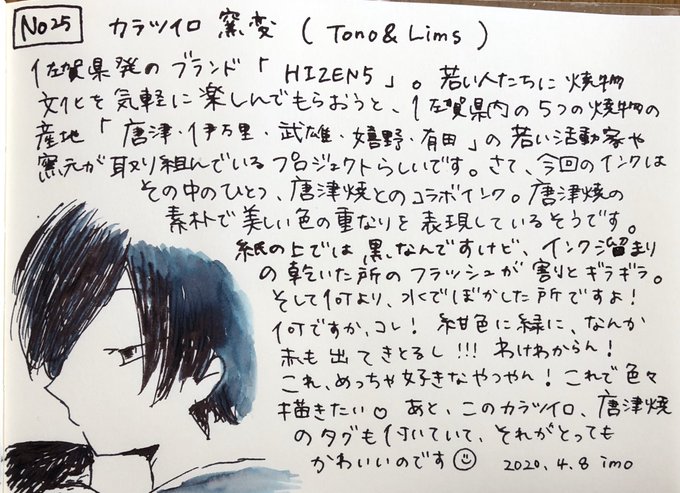 No25 カラツイロ 窯変 (Tono&Lims)
佐賀県発のブランド「HIZEN5」。若い人たちに焼物
文化を気軽に楽しんでもらおうと、佐賀県内の5つの焼物の
産地「唐津・伊万里・武雄・嬉野・有田」の若い活動家や
窯元が取り組んでいるプロジェクトらしいです。さて、今回のインクは
その中のひとつ、唐津焼とのコラボインク。唐津焼の
素朴で美しい色の重なりを表現しているそうです。
紙の上では黒なんですけど、インク溜まり
の乾いた所のフラッシュが割とギラギラ。
そして何より、水でぼかした所ですよ!
何ですか、コレ!紺色に緑に、なんか
赤も出てきとるし!!!わけわからん!
これ、めっちゃ好きなやつやん!これで色々
描きたい♡ あと、このカラツイロ、唐津焼
のタグも付いていて、それがとっても
かわいいのです☺ 2020.4.8 imo